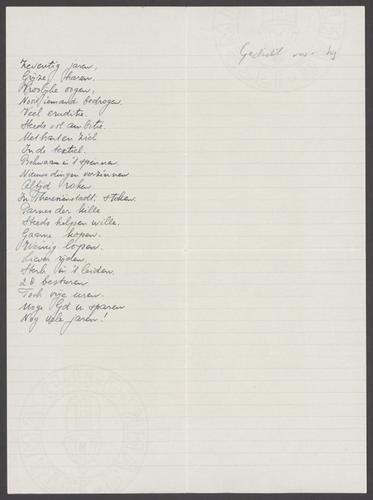 Gedicht voor
Zeventig jaren,
Grijze haren.
Vroolijke oogen,
Nooit iemand bedrogen.
Veel eruditie.
Steeds vol ambitie.
Met hart en ziel
In de textiel.
Bekwaam in 't spinnen
Nieuwe dingen verzinnen
Altijd roken
In Theresienstadt: stoken.
Dames der hille
Steeds helpen wille.
Gaarne hopen.
Weinig loopen.
Liever rijden,
Sterk in 't leiden.
28 besturen
Toch vrije uren.
Moge tijd u sparen
Nog vele jaren!